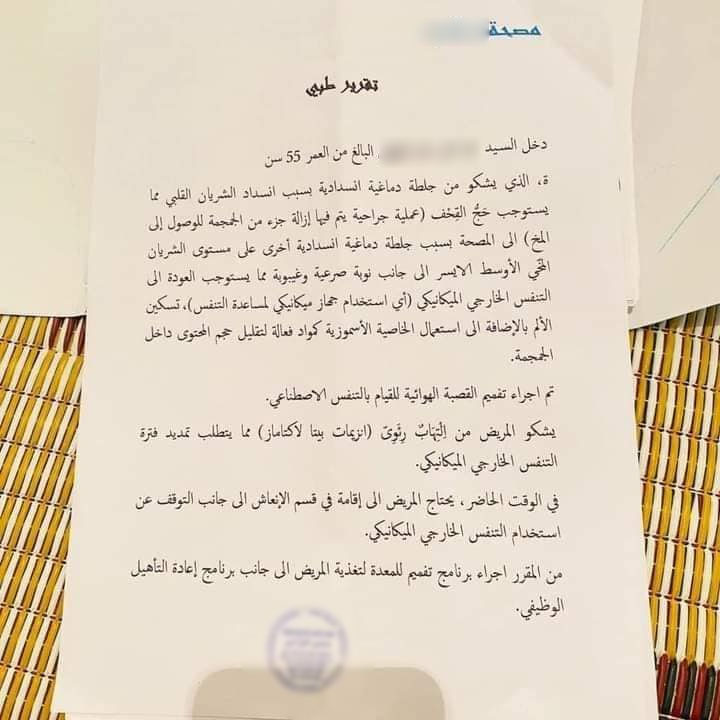 مصحة
تقرير طبي
دخل السيد البالغ من العمر 55 سن
ة، الذي يشكو من جلطة دماغية انسدادية بسبب انسداد الشريان القلبي مما
يستوجب حَجُّ القِحْف (عملية جراحية يتم فيها إزالة جزء من الجمجمة للوصول إلى
المخ) الى المصحة بسبب جلطة دماغية انسدادية أخرى على مستوى الشريان
المخّي الأوسط الايسر الى جانب نوبة صرعية وغيبوبة مما يستوجب العودة الى
التنفس الخارجي الميكانيكي (أي استخدام جهاز ميكانيكي لمساعدة التنفس)، تسكين
الألم بالإضافة الى استعمال الخاصية الأسموزية كمواد فعالة لتقليل حجم المحتوى داخل
الجمجمة.
تم اجراء تفميم القصبة الهوائية للقيام بالتنفس الاصطناعي.
يشكو المريض من اِلْتِهَابٌ رِئَوِىّ (انزيمات بيتا لأكتاماز) مما يتطلب تمديد فترة
التنفس الخارجي الميكانيكي.
في الوقت الحاضر، يحتاج المريض الى إقامة في قسم الإنعاش الى جانب التوقف عن
استخدام التنفس الخارجي الميكانيكي.
من المقرر اجراء برنامج تفميم للمعدة لتغذية المريض الى جانب برنامج إعادة التأهيل
الوظيفي.